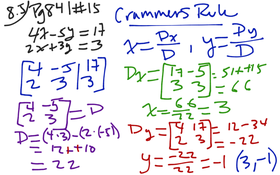 8.5/Pg841#15
4x-5y=17
2x+3y=3
[4 -5 | 17
2 3 | 3]
[4 -5
2 3] = D
D=(4·3)-(2·(-5))
= 12++10
= 22
Crammers Rule
x = Dx/D , y = Dy/D
Dx = [17 -5
3 3] = 51+15
= 66
x = 66/22 = 3
Dy = [4 17
2 3] = 12-34
= -22
y = -22/22 = -1 (3,-1)